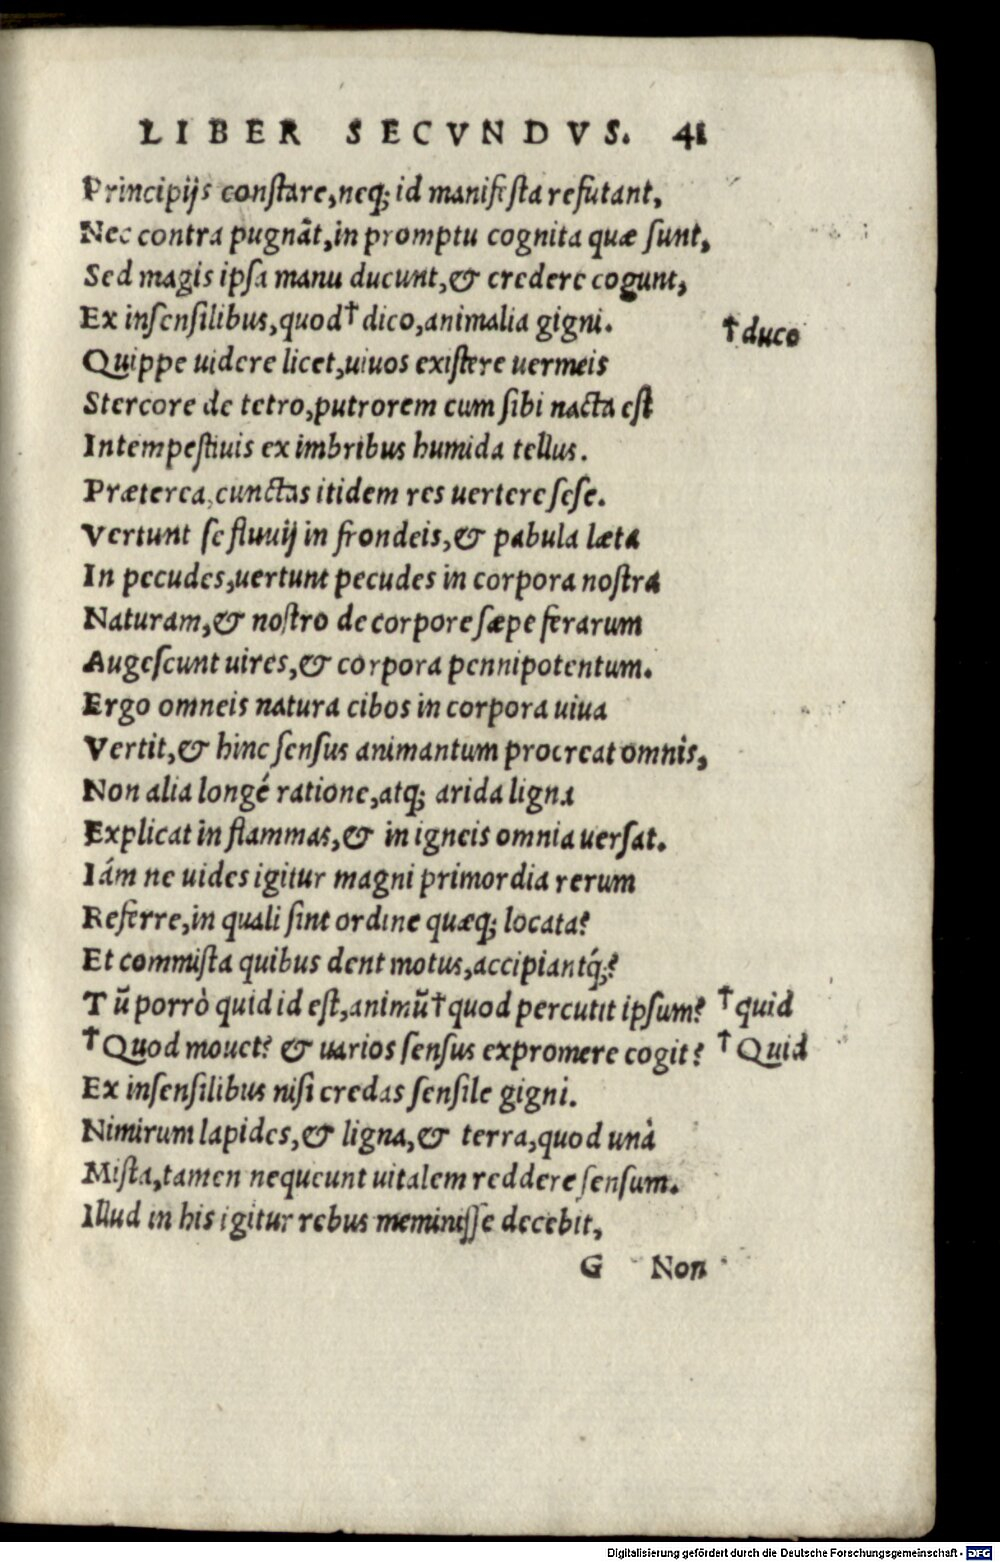 LIBER SECVNDVS. 41
Principijs constare,neq; id manifesta refutant,
Nec contra pugnãt,in promptu cognita quæ sunt,
Sed magis ipsa manu ducunt,& credere cogunt,
Ex insensilibus,quod† dico,animalia gigni. †duco
Quippe uidere licet,uiuos existere uermeis
Stercore de tetro,putrorem cum sibi nacta est
Intempestiuis ex imbribus humida tellus.
Præterea,cunctas itidem res uertere sese.
Vertunt se fluuij in frondeis,& pabula læta
In pecudes,uertunt pecudes in corpora nostra
Naturam,& nostro de corpore sæpe ferarum
Augescunt uires,& corpora pennipotentum.
Ergo omneis natura cibos in corpora uiua
Vertit,& hinc sensus animantum procreat omnis,
Non alia longé ratione,atq; arida ligna
Explicat in flammas,& in igneis omnia uersat.
Iám ne uides igitur magni primordia rerum
Referre,in quali sint ordine quæq; locata?
Et commista quibus dent motus,accipiantq́;?
Tũ porrò quid id est,animũ†quod percutit ipsum? †quid
†Quod mouet? & uarios sensus expromere cogit? †Quid
Ex insensilibus nisi credas sensile gigni.
Nimirum lapides,& ligna,& terra,quod unà
Mista,tamen nequeunt uitalem reddere sensum.
Illud in his igitur rebus meminisse decebit,
G Non
Digitalisierung gefördert durch die Deutsche Forschungsgemeinschaft - DFG